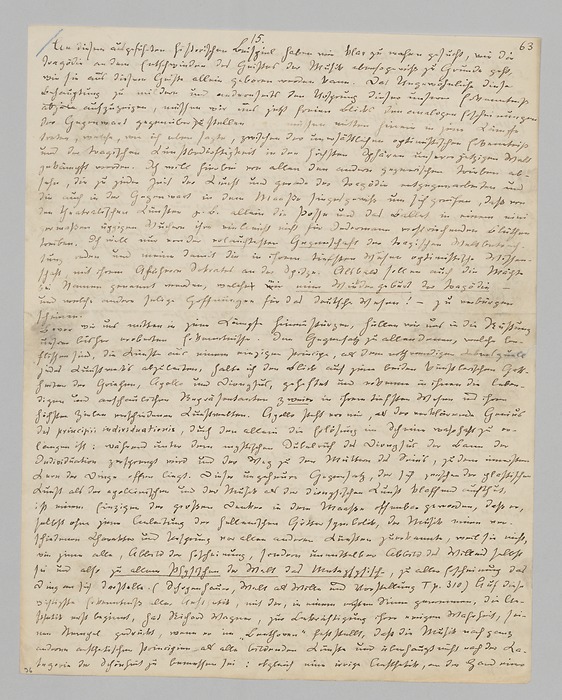 15.
63
An diesem ausgeführten historischen Beispiel haben wir klar zu machen gesucht, wie die
Tragödie an dem Entschwinden des Geistes der Musik ebenso gewiss zu Grunde geht,
wie sie aus diesem Geiste allein geboren werden kann. Das Ungewöhnliche dieser
Behauptung zu mildern und andererseits den Ursprung dieser unserer Erkenntniss
aufzuzeigen, müssen wir uns jetzt freien Blicks den analogen Erscheinungen
der Gegenwart gegenüber stellen müssen mitten hinein in jene Kämpfe
treten, welche, wie ich eben sagte, zwischen der unersättlichen optimistischen Erkenntniss
und der tragischen Kunstbedürftigkeit in den höchsten Sphären unserer jetzigen Welt
gekämpft werden. Ich will hierbei von allen den andern gegnerischen Trieben ab-
sehn, die zu jeder Zeit der Kunst und gerade der Tragödie entgegenarbeiten und
die auch in der Gegenwart in dem Maasse siegesgewiss um sich greifen, dass von
den theatralischen Künsten z.B. allein die Posse und das Ballet in einem eini-
germaassen üppigen Wuchern ihre vielleicht nicht für Jedermann wohlriechenden Blüthen
treiben. Ich will nur von der erlauchtesten Gegnerschaft der tragischen Weltbetrach-
tung reden und meine damit die in ihrem tiefsten Wesen optimistische Wissen-
schaft, mit ihrem Ahnherrn Sokrates an der Spitze. Alsbald sollen auch die Mächte
bei Namen genannt werden, welche mir eine Wiedergeburt der Tragödie —
und welche andere selige Hoffnungen für das deutsche Wesen! — zu verbürgen
scheinen.
Bevor wir uns mitten in jene Kämpfe hineinstürzen, hüllen wir uns in die Rüstung
unsrer bisher eroberten Erkenntnisse. Im Gegensatz zu allen denen, welche be-
flissen sind, die Künste aus einem einzigen Princip, als dem nothwendigen Lebensquell
jedes Kunstwerks abzuleiten, halte ich den Blick auf jene beiden künstlerischen Gott-
heiten der Griechen, Apollo und Dionysus, geheftet und erkenne in ihnen die leben-
digen und anschaulichen Repräsentanten zweier in ihrem tiefsten Wesen und ihren
höchsten Zielen verschiedenen Kunstwelten. Apollo steht vor mir, als der verklärende Genius
des principii individuationis, durch den allein die Erlösung im Scheine wahrhaft zu er-
langen ist: während unter dem mystischen Jubelruf des Dionysus der Bann der
Individuation zersprengt wird und der Weg zu den Müttern des Sein's, zu dem innersten
Kern der Dinge offen liegt. Dieser ungeheure Gegensatz, der sich zwischen der plastischen
Kunst als der apollinischen und der Musik als der dionysischen Kunst klaffend aufthut,
ist einem Einzigen der grossen Denker in dem Maasse offenbar geworden, dass er,
selbst ohne jene Anleitung der hellenischen Göttersymbolik, der Musik einen ver-
schiedenen Charakter und Ursprung vor allen anderen Künsten zuerkannte, weil sie nicht,
wie jene alle, Abbild der Erscheinung, sondern unmittelbar Abbild des Willens selbst
sei und also zu allem Physischen der Welt das Metaphysische, zu aller Erscheinung das
Ding an sich darstelle. (Schopenhauer, Welt als Wille und Vorstellung I p. 310) Auf diese
wichtigste Erkenntniss aller Aesthetik, mit der, in einem ernstern Sinne genommen, die Aes-
thetik erst beginnt, hat Richard Wagner, zur Bekräftigung ihrer ewigen Wahrheit, sei-
nen Stempel gedrückt, wenn er im „Beethoven" feststellt, dass die Musik nach ganz
anderen aesthetischen Principien als alle bildenden Künste und überhaupt nicht nach der Ka-
tegorie der Schönheit zu bemessen sei: obgleich eine irrige Aesthetik, an der Hand einer